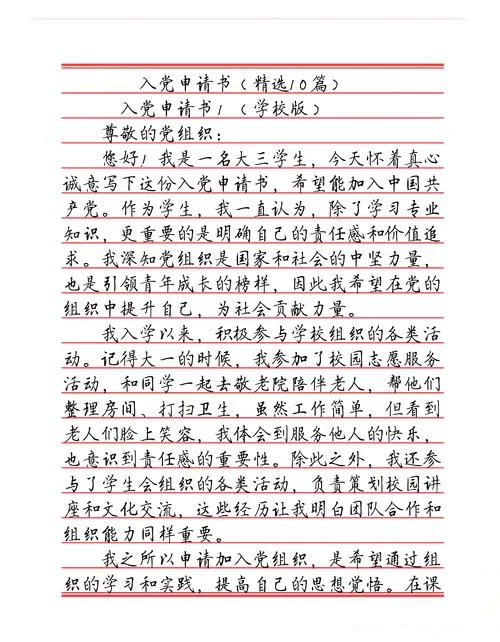 入党申请书（精选10篇）
入党申请书1（学校版）
尊敬的党组织：
您好！我是一名大三学生，今天怀着真心
诚意写下这份入党申请书，希望能加入中国共
产党。作为学生，我一直认为，除了学习专业
知识，更重要的是明确自己的责任感和价值追
求。我深知党组织是国家和社会的中坚力量，
也是引领青年成长的榜样，因此我希望在党的
组织中提升自己，为社会贡献力量。
我入学以来，积极参与学校组织的各类活
动。记得大一的时候，我参加了校园志愿服务
活动，和同学一起去敬老院陪伴老人，帮他们
整理房间、打扫卫生，虽然工作简单，但看到
老人们脸上笑容，我体会到服务他人的快乐，
也意识到责任感的重要性。除此之外，我还参
与了学生会组织的各类活动，负责策划校园讲
座和文化交流，这些经历让我明白团队合作和
组织能力同样重要。
我之所以申请加入党组织，是希望通过组
织的学习和实践，提高自己的思想觉悟。在课